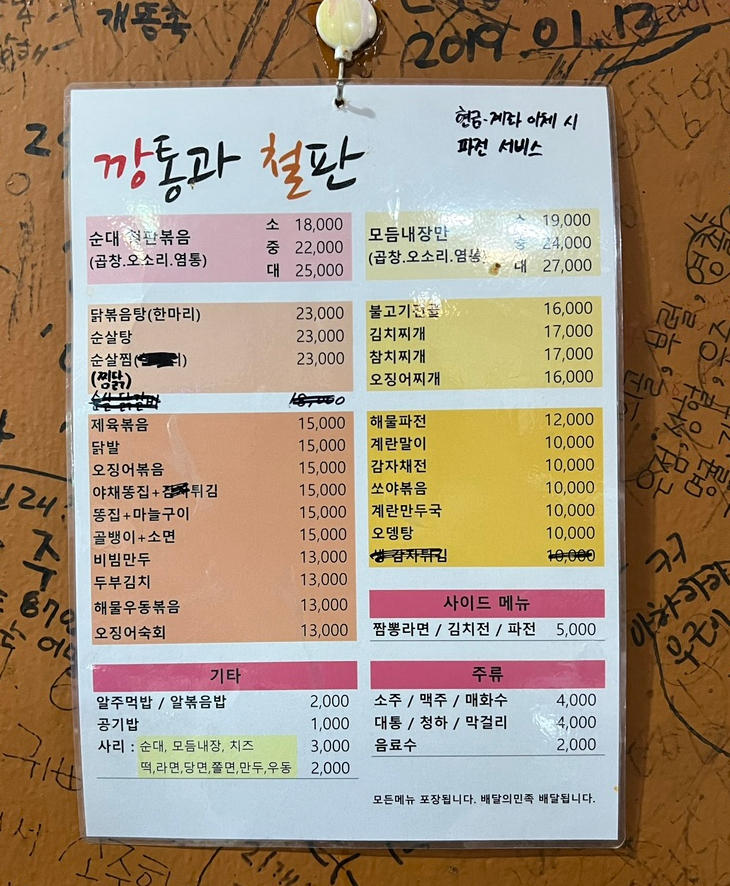 개똥촉
2019 .01.13
깡통과 철판
현금·계좌 이체 시
파전 서비스
순대 철판볶음
(곱창.오소리.염통)
소 18,000
중 22,000
대 25,000
모듬내장만
(곱창.오소리.염통)
소 19,000
중 24,000
대 27,000
닭볶음탕(한마리) 23,000
순살탕 23,000
순살찜( 23,000
(찜닭)
18,000
제육볶음 15,000
닭발 15,000
오징어볶음 15,000
야채똥집+ 튀김 15,000
똥집+마늘구이 15,000
골뱅이+소면 15,000
비빔만두 13,000
두부김치 13,000
해물우동볶음 13,000
오징어숙회 13,000
불고기전골 16,000
김치찌개 17,000
참치찌개 17,000
오징어찌개 16,000
해물파전 12,000
계란말이 10,000
감자채전 10,000
쏘야볶음 10,000
계란만두국 10,000
오뎅탕 10,000
생감자튀김 10,000
사이드 메뉴
짬뽕라면 / 김치전 / 파전 5,000
기타
알주먹밥 / 알볶음밥 2,000
공기밥 1,000
사리 : 순대, 모듬내장, 치즈 3,000
떡,라면,당면,쫄면,만두,우동 2,000
주류
소주 / 맥주 / 매화수 4,000
대통 / 청하 / 막걸리 4,000
음료수 2,000
모든메뉴 포장됩니다. 배달의민족 배달됩니다.